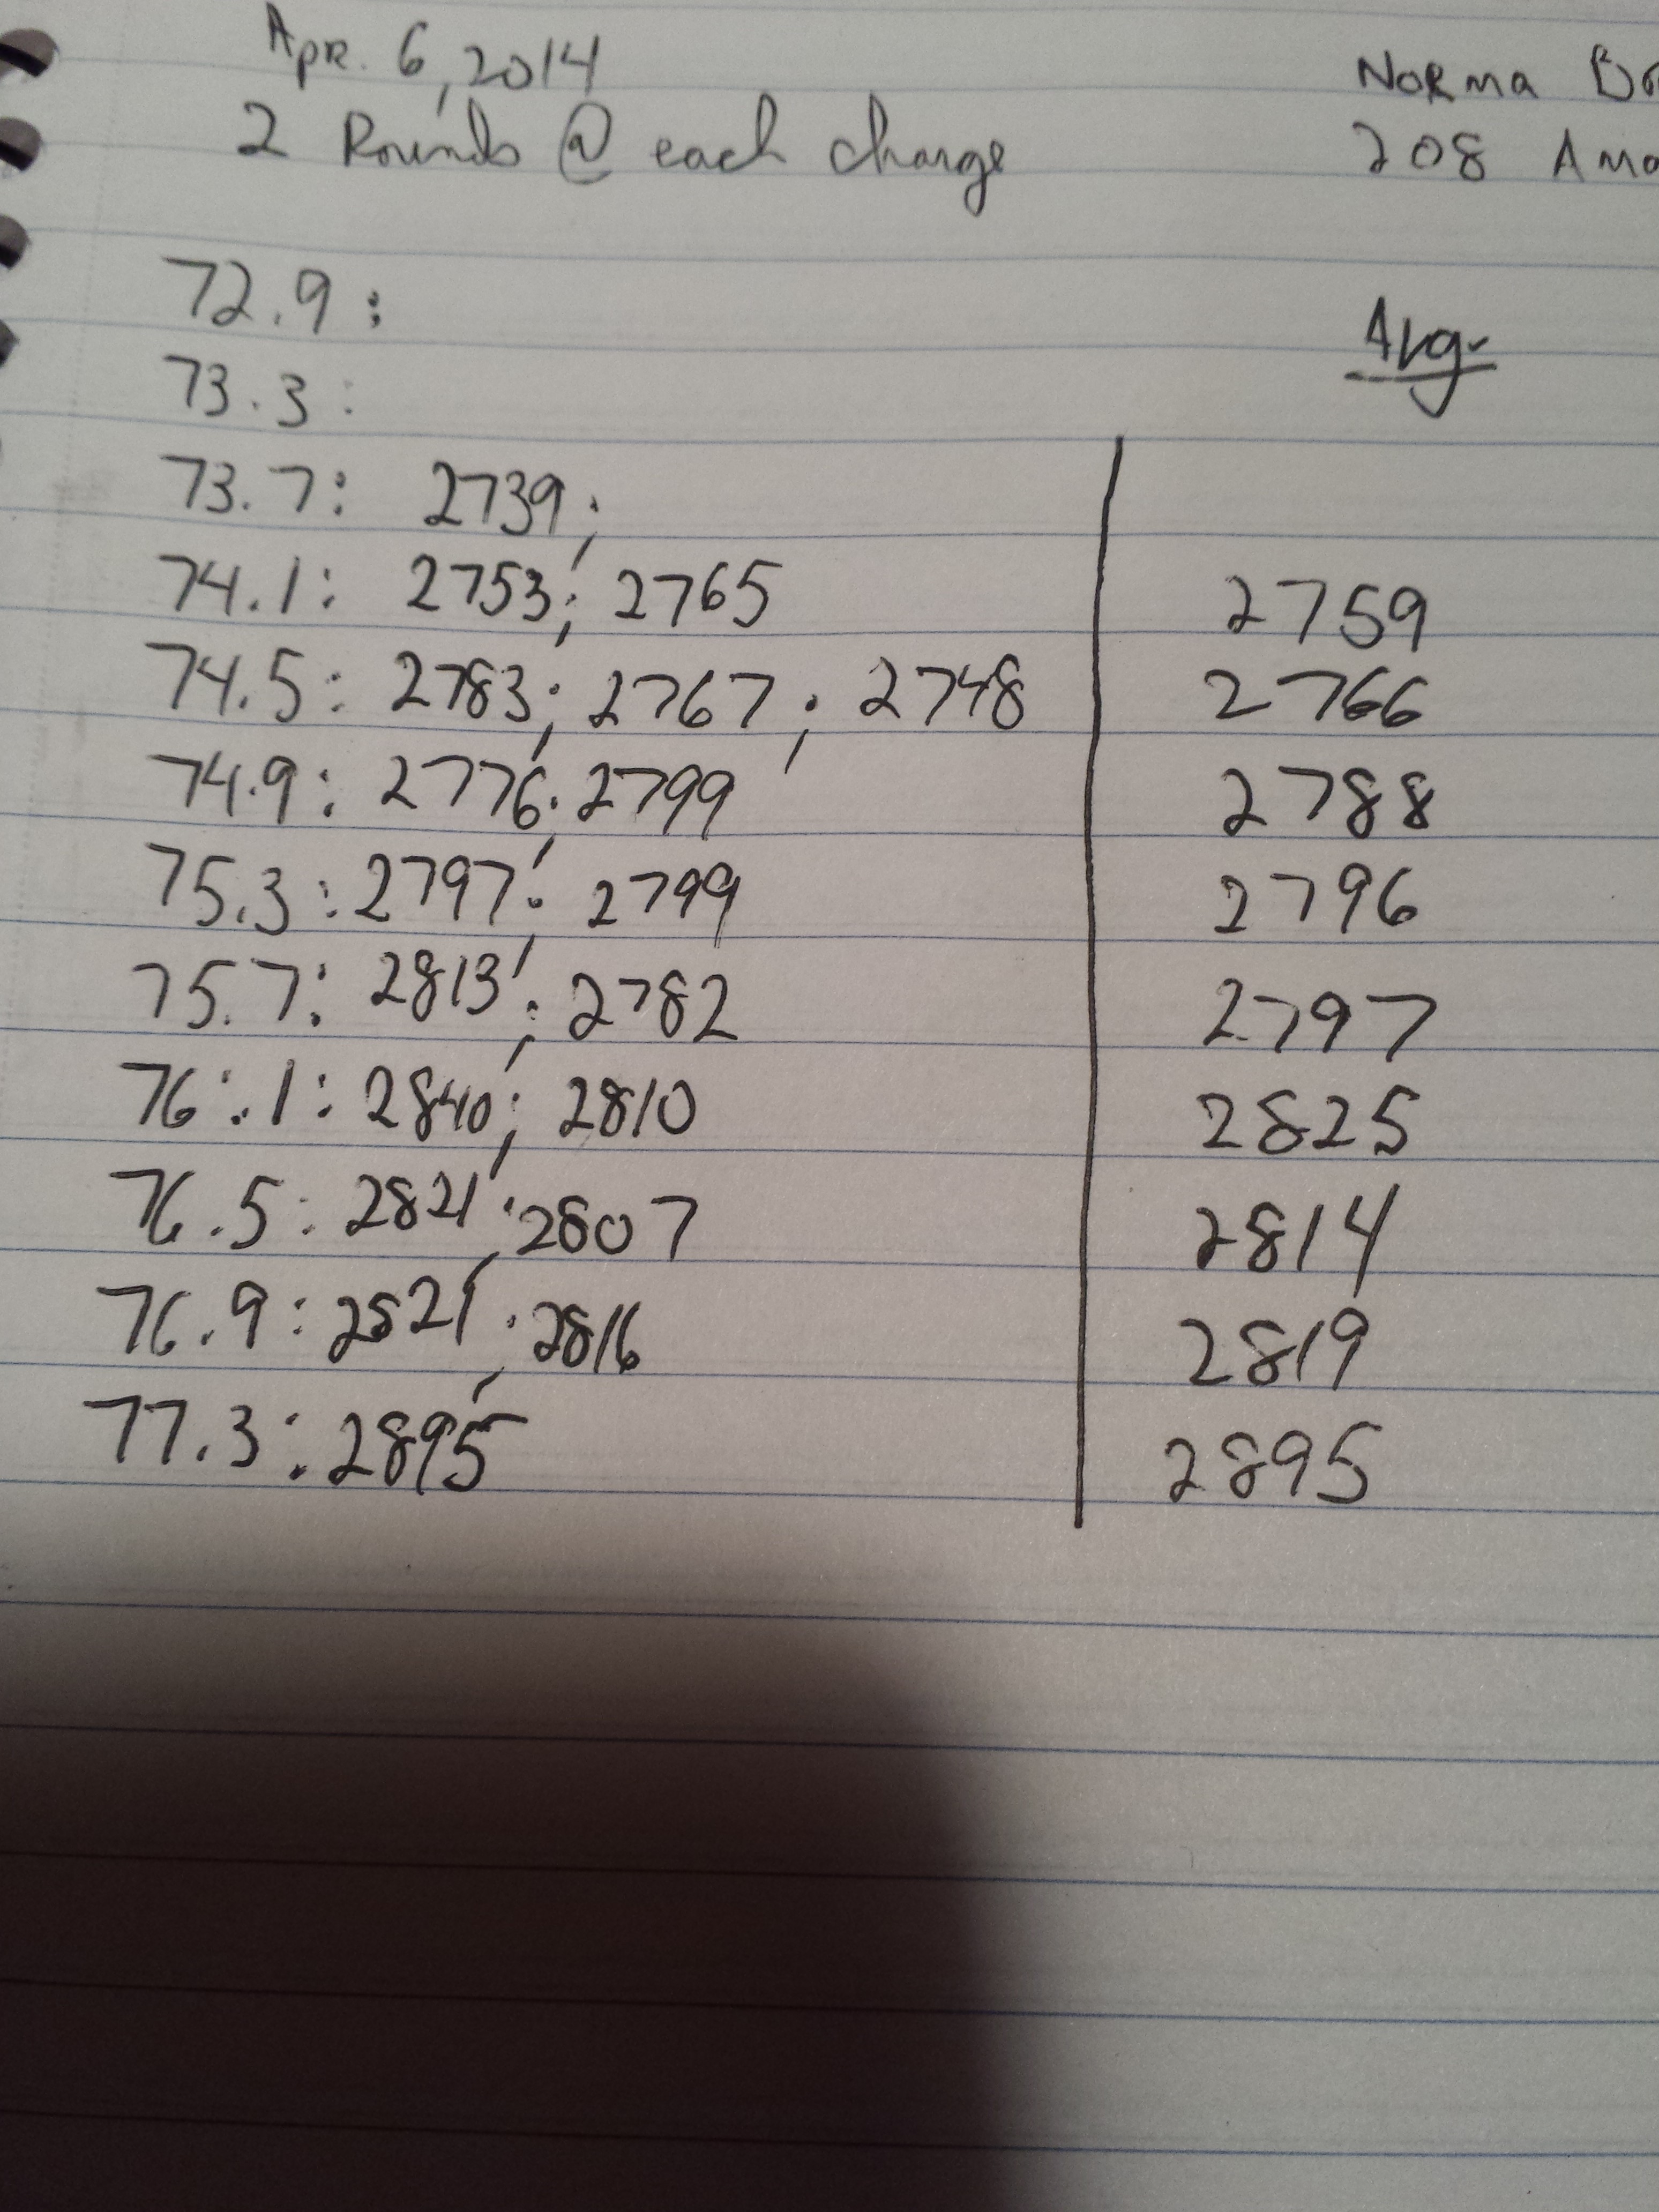 Apr. 6, 2014
2 Rounds @ each charge
Norma
208
72.9:
Avg.
73.3:
73.7: 2739;
74.1: 2753; 2765 2759
74.5: 2783; 2767; 2748 2766
74.9: 2776; 2799 2788
75.3: 2797; 2799 2796
75.7: 2813; 2782 2797
76.1: 2840; 2810 2825
76.5: 2821; 2807 2814
76.9: 2821; 2816 2819
77.3: 2895 2895